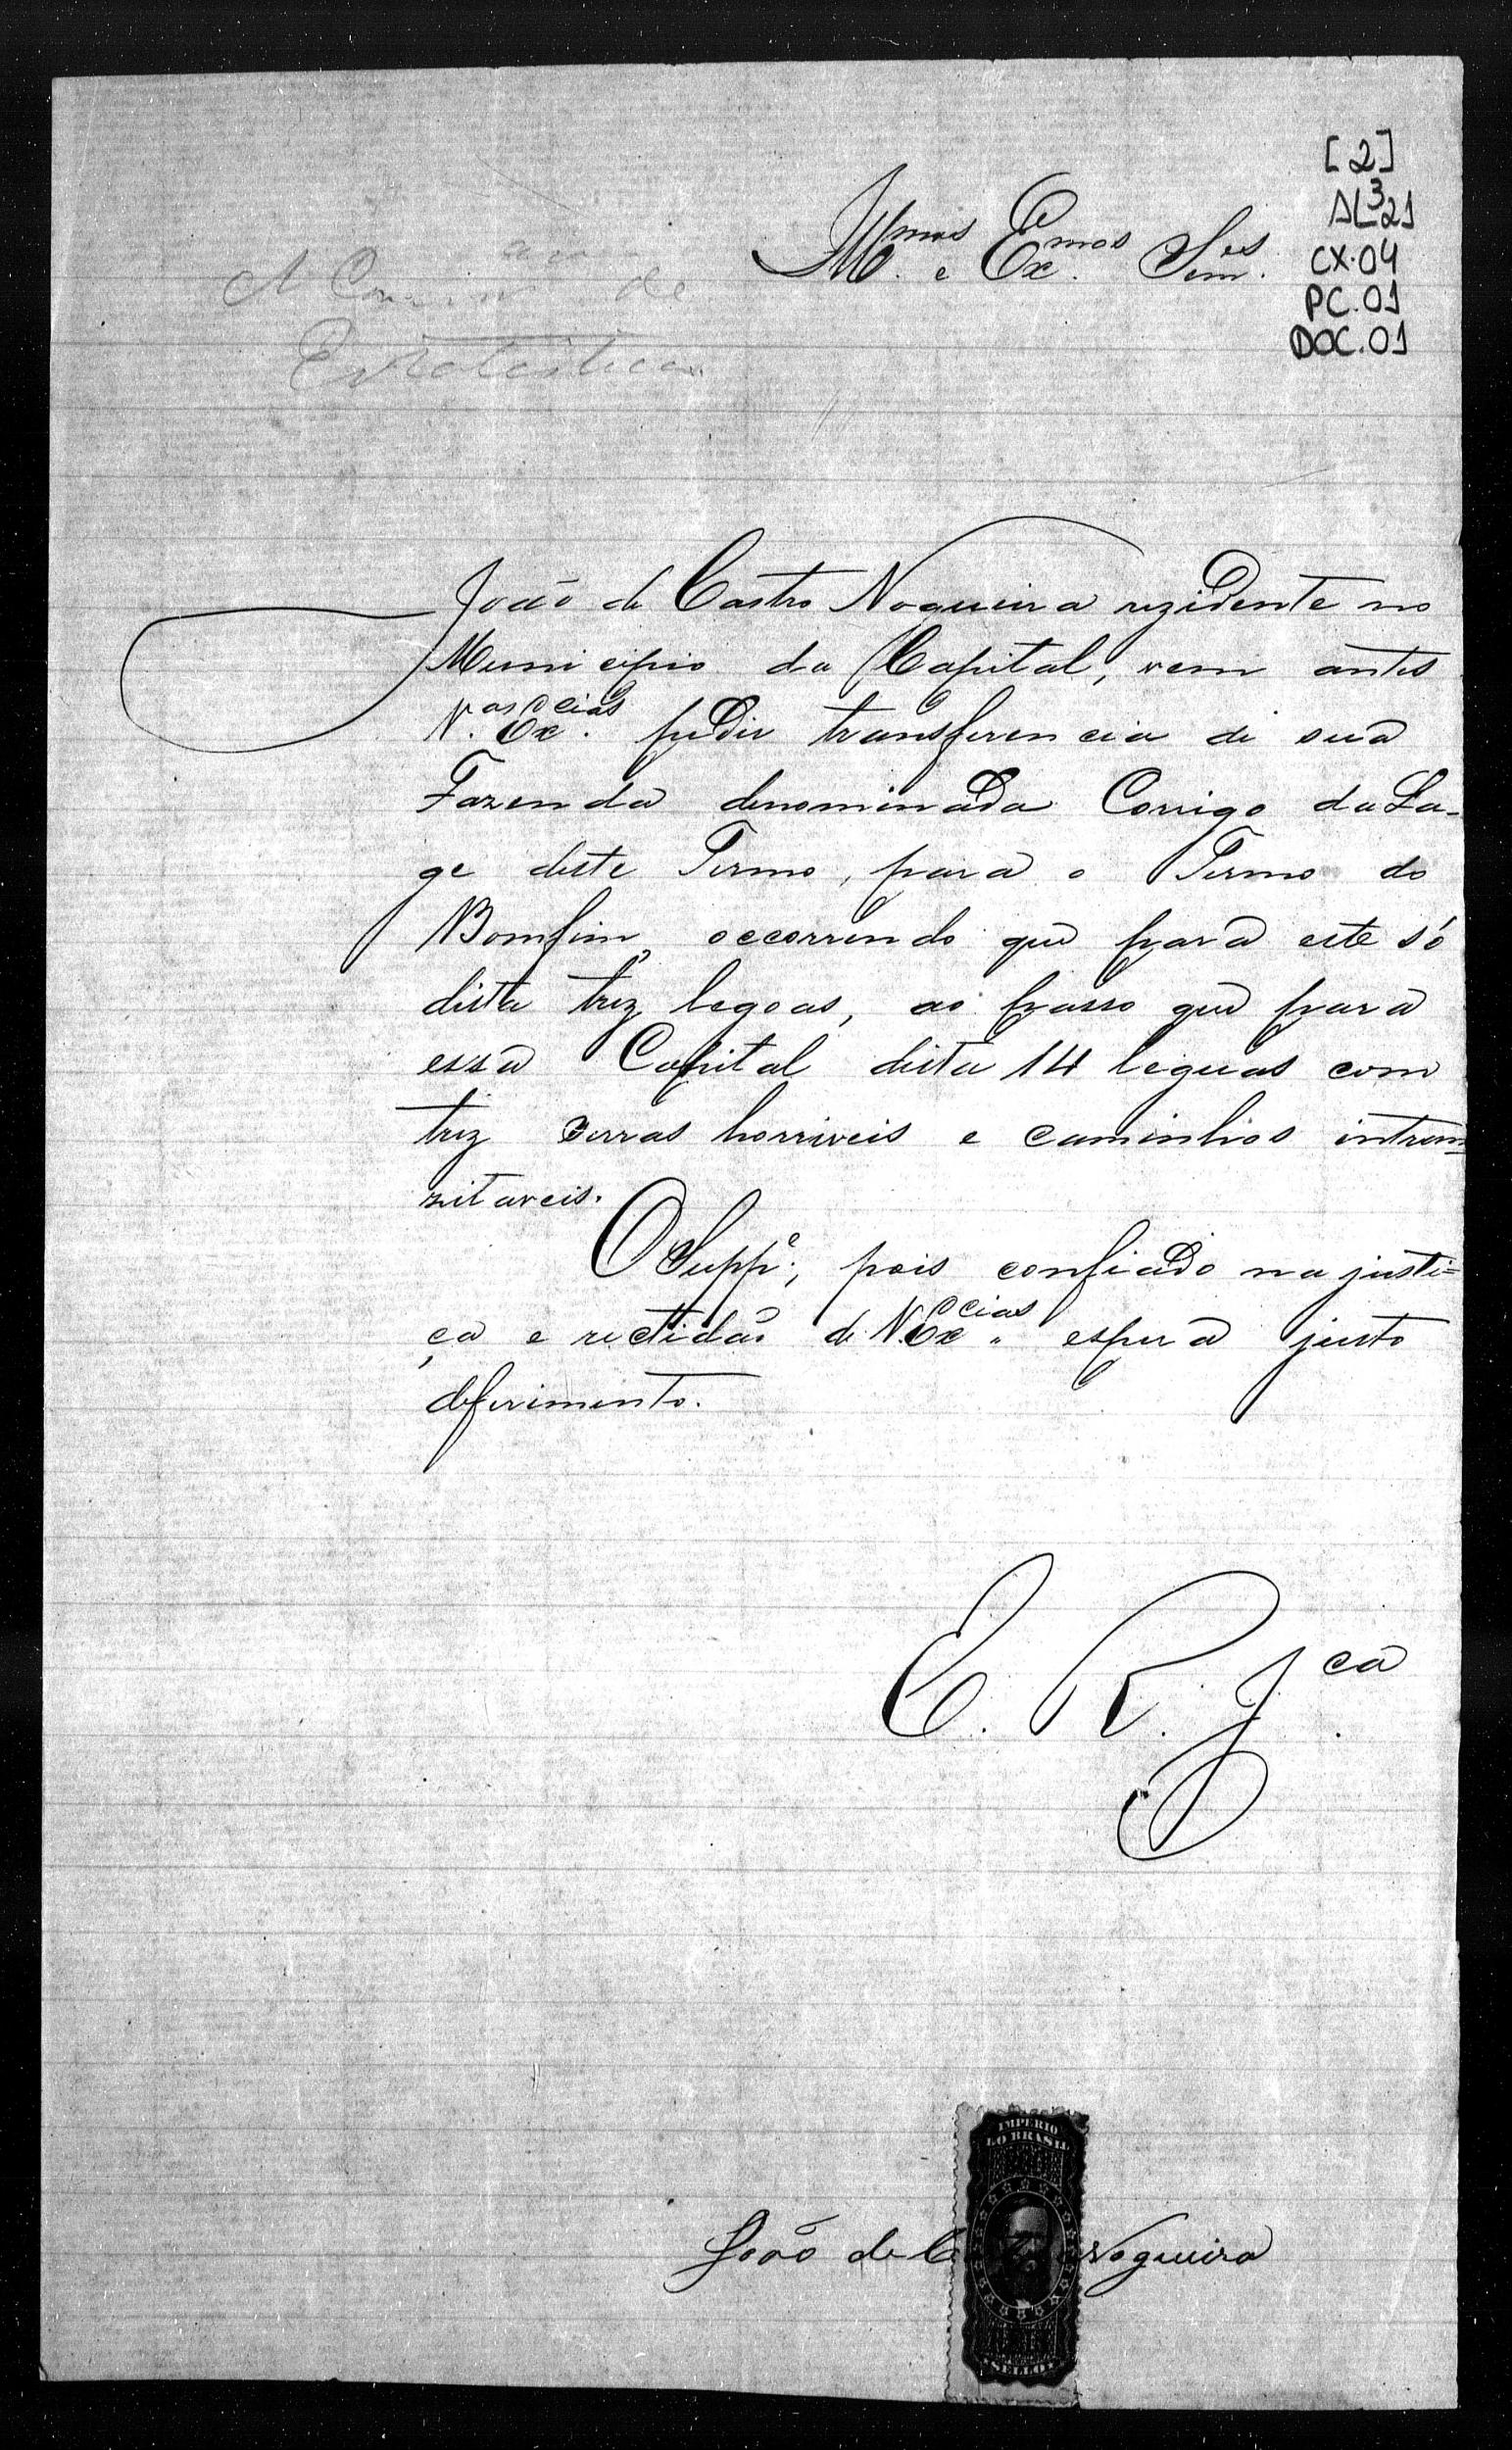 [2]
AL³21
CX.04
PC.01
DOC.01
Illmos. e Exmos. Senres.
A Commissão de
Estatistica
João de Castro Nogueira rezidente no
Municipio da Capital, vem antes
V.as Ex.cias pedir transferencia de sua
Fazenda denominada Corrigo da La-
ge deste Termo, para o Termo do
Bomfim, occorrendo que para este só
dista trez legoas, ao passo que para
essa Capital dista 14 leguas com
trez serras horriveis e caminhos intran-
zitaveis.
O Suppe., pois confiado na justi=
ça e rectidão de V. Excias espera justo
deferimento.
E. R. Jca.
IMPERIO
DO BRASIL
João de Castro Nogueira
SELLO